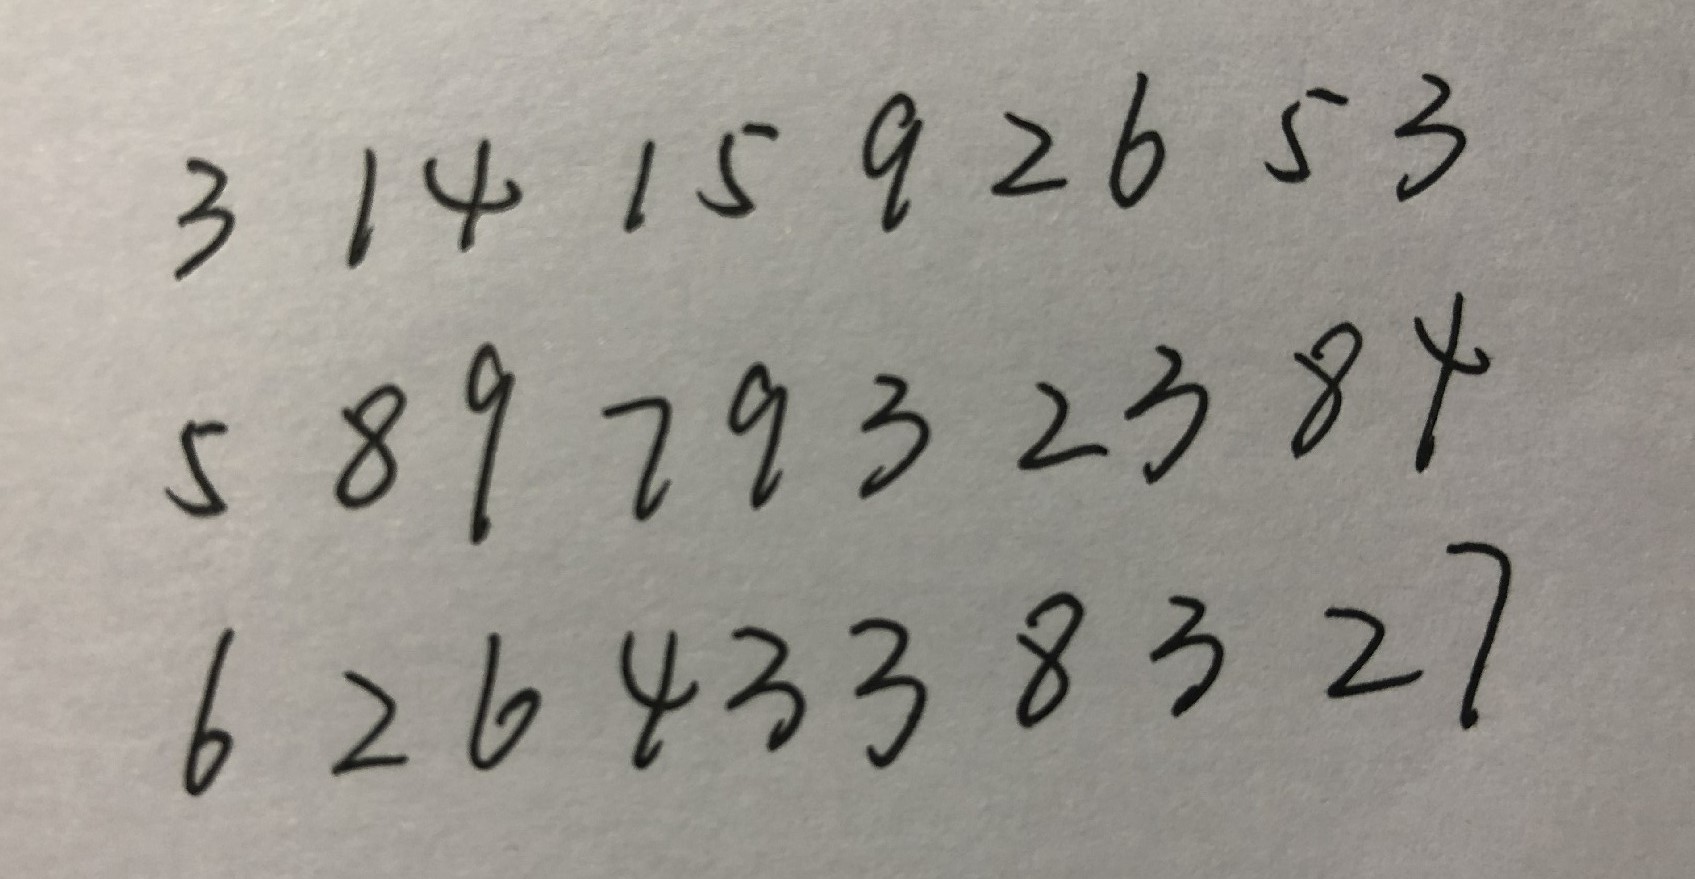 3 1 4 1 5 9 2 6 5 3
5 8 9 7 9 3 2 3 8 4
6 2 6 4 3 3 8 3 2 7